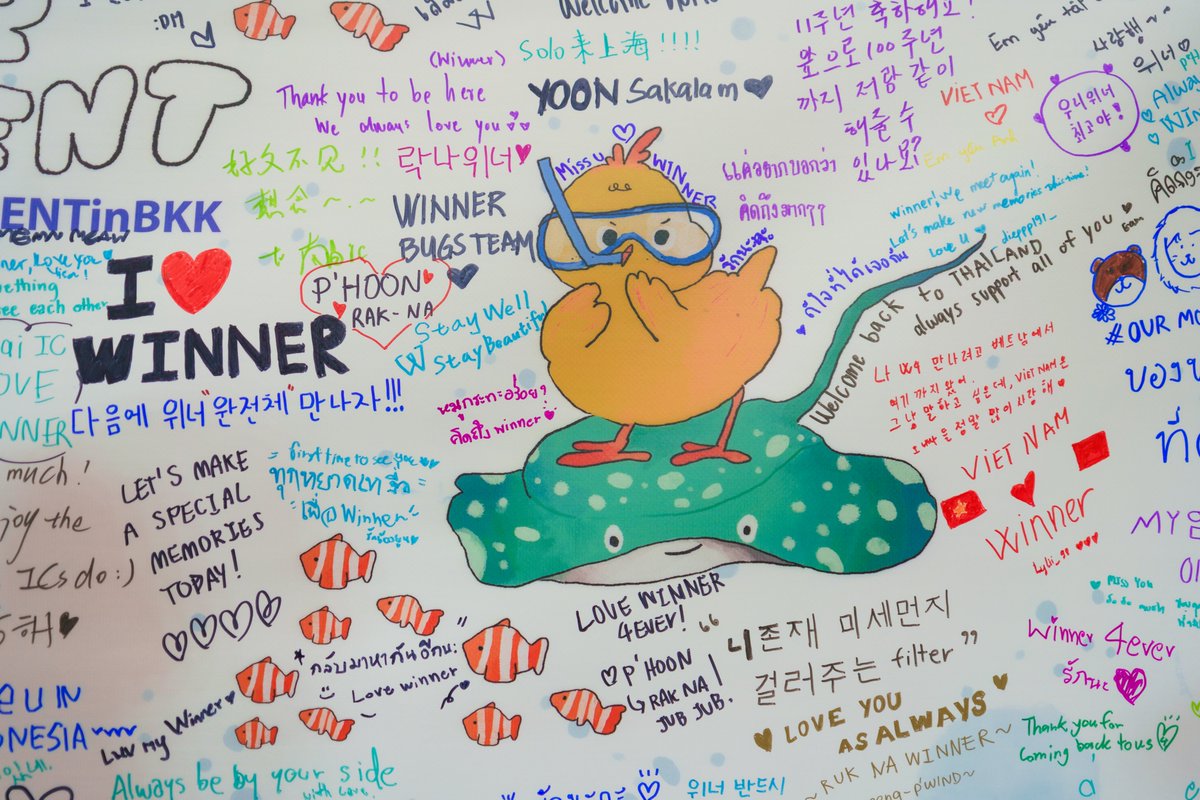 :DM
Welcome
ENT
(Winner)
Solo 来上海 !!!!
11주년 축하해요!
앞으로 100주년
까지 저랑 같이
해줄 수
있나요?
Em yêu
사랑해~~
위너♡
Thank you to be here
We always love you
YOON Sakalam
VIET NAM
우리위너
최고야!
Always
WIN
好久不见!!
락나위너
想念~.~
Miss u WINNER
แค่อยากบอกว่า
คิดถึงมากๆๆ
Em yêu Anh
ENTinBKK
WINNER
BUGS TEAM
Winner! We meet again!
Let's make new memories
Love U
dieppl91_
I
WINNER
P'HOON
RAK-NA
Stay Well
Stay Beautiful
รักนะ
ดีใจที่ได้เจอกัน
Welcome back to THAILAND
always support all of you
love you
see each other
IC
LOVE
다음에 위너 "완전체" 만나자!!!
หมูกระทะอร่อย?
คิดถึง winner
나 위너 만나려고 베트남에서
여기까지 왔어
그냥 말하고 싶은데, VIET NAM은
정말 많이 사랑해
#OUR MO
much!
enjoy the
ICs do :)
LET'S MAKE
A SPECIAL
MEMORIES
TODAY!
first time to see you
ทุกหยาดเหงื่อ
เพื่อ Winner
VIET NAM
winner
MY
LOVE WINNER
4EVER!
"니존재 미세먼지
걸러주는 filter"
Miss You
Winner 4ever
รักนะ
กลับมาหากันอีกนะ
Love winner
P'HOON
RAK NA
JUB JUB.
Luv my Winner
LOVE YOU
AS ALWAYS
Thank you for
coming back to us
IN
~RUK NA WINNER~
Always be by your side
with love!
위너 반드시